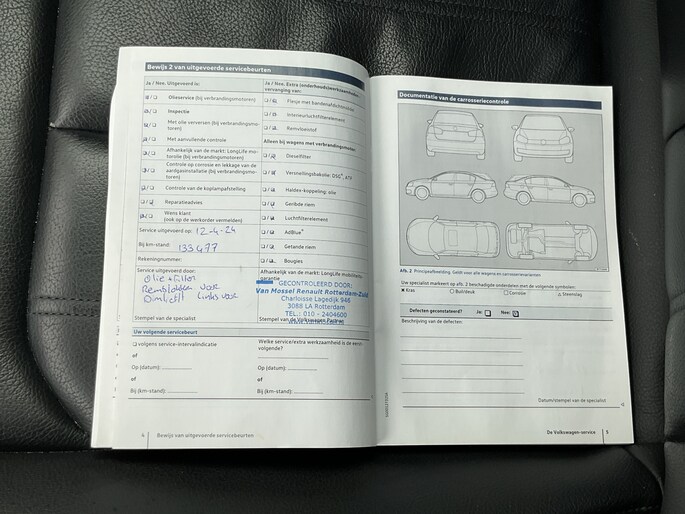 Bewijs 2 van uitgevoerde servicebeurten
Ja / Nee. Uitgevoerd is:
Olieservice (bij verbrandingsmotoren)
Inspectie
Met olie verversen (bij verbrandingsmotoren)
Met aanvullende controle
Afhankelijk van de markt: LongLife motorolie (bij verbrandingsmotoren)
Controle op corrosie en lekkage van de aardgasinstallatie (bij verbrandingsmotoren)
Controle van de koplampafstelling
Reparatieadvies
Wens klant
(ook op de werkorder vermelden)
Service uitgevoerd op: 12-4-24
Bij km-stand: 133477
Rekeningnummer:
Service uitgevoerd door:
Olie + filter
Remblokken voor
Dimlicht links voor
Stempel van de specialist
Ja / Nee. Extra
vervanging van:
Flesje met bandenafdichtmiddel
Interieurluchtfilterelement
Remvloeistof
Alleen bij wagens met verbrandingsmotor:
Dieselfilter
Versnellingsbakolie: DSG®, ATF
Haldex-koppeling: olie
Geribde riem
Luchtfilterelement
AdBlue®
Getande riem
Bougies
Afhankelijk van de markt: LongLife mobiliteitsgarantie
GECONTROLEERD DOOR:
Van Mossel Renault Rotterdam-Zuid
Charloisse Lagedijk 946
3088 LA Rotterdam
TEL.: 010 - 2404600
Stempel van de Volkswagen Partner
Uw volgende servicebeurt
volgens service-intervalindicatie
of
Op (datum):
of
Bij (km-stand):
Welke service/extra werkzaamheid is de eerstvolgende?
of
Op (datum):
of
Bij (km-stand):
4 Bewijs van uitgevoerde servicebeurten
Documentatie van de carrosseriecontrole
Afb. 2 Principeafbeelding. Geldt voor alle wagens en carrosserievarianten
Uw specialist markeert op afb. 2 beschadigde onderdelen met de volgende symbolen:
Kras Buil/deuk Corrosie Steenslag
Defecten geconstateerd? Ja: Nee:
Beschrijving van de defecten:
Datum/stempel van de specialist
De Volkswagen-service 5